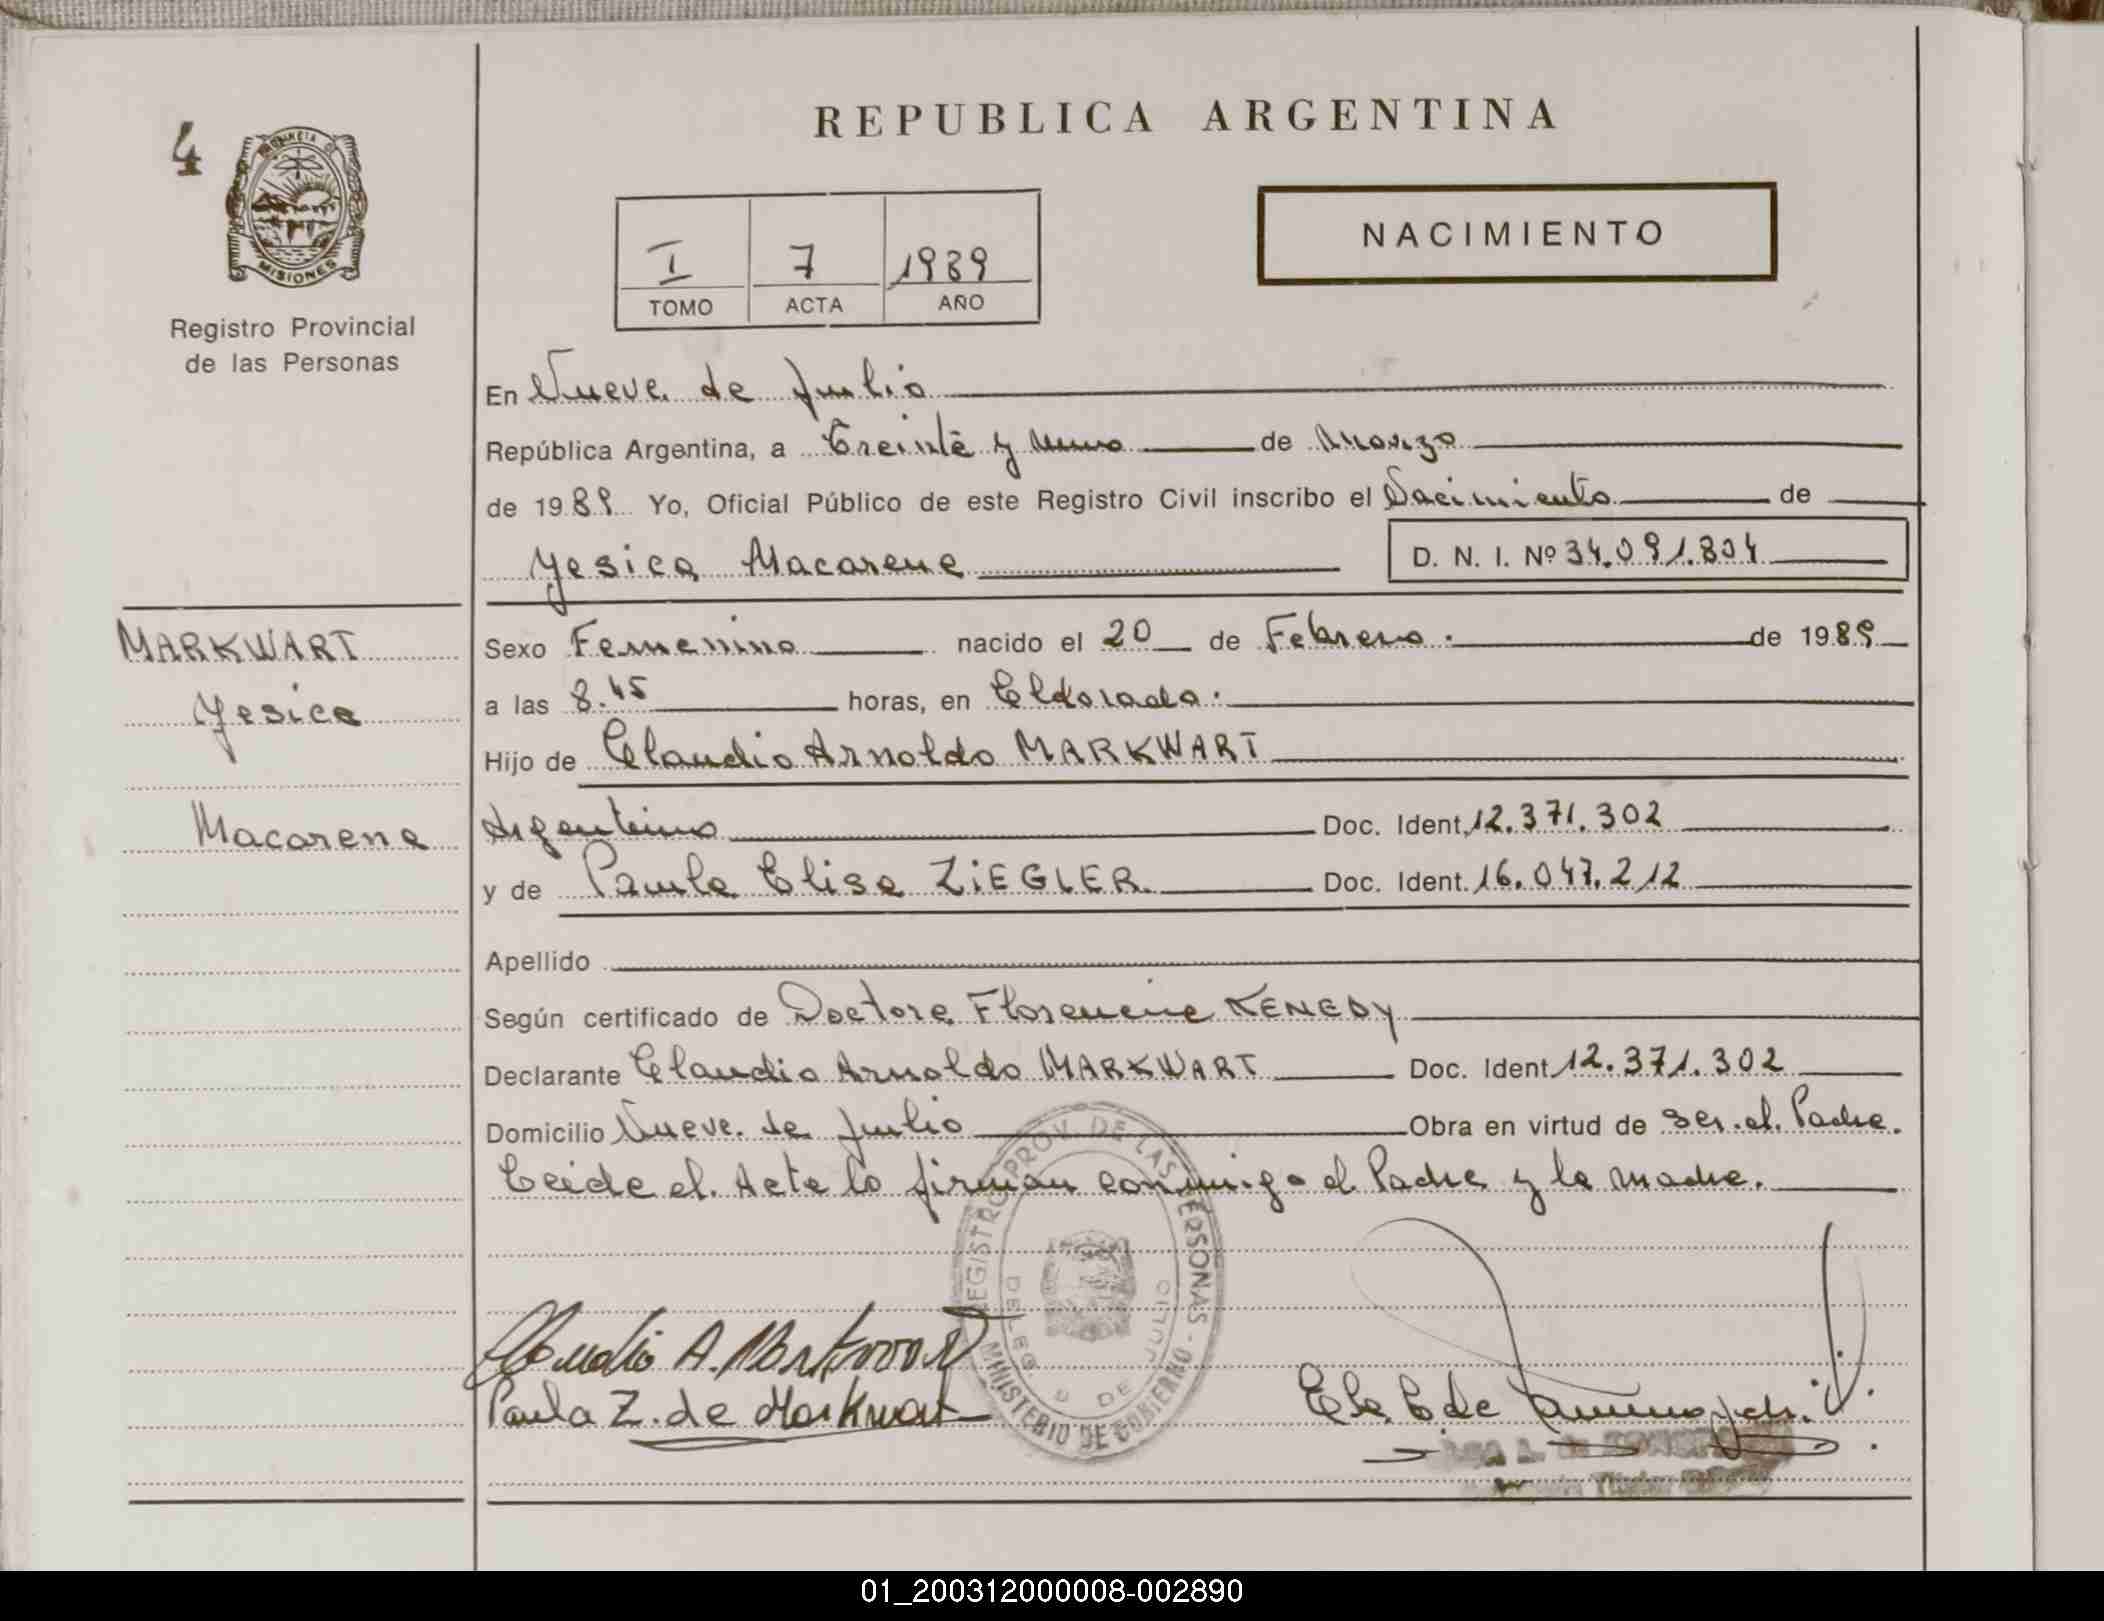 REPUBLICA ARGENTINA
4
MISIONES
Registro Provincial
de las Personas
I 7 1989
TOMO ACTA AÑO
NACIMIENTO
En Nueve de Julio
República Argentina, a Treinta y uno de Marzo
de 1989 Yo, Oficial Público de este Registro Civil inscribo el Nacimiento de
Yesica Macarena D. N. I. Nº 34.091.804
MARKWART
Yesica
Macarena
Sexo Femenino nacido el 20 de Febrero. de 1989
a las 8.45 horas, en Eldorado.
Hijo de Claudio Arnoldo MARKWART
Argentino Doc. Ident. 12.371.302
y de Paula Elisa ZiEGLER. Doc. Ident. 16.047.212
Apellido
Según certificado de Doctora Florencia KENEDY
Declarante Claudio Arnoldo MARKWART Doc. Ident 12.371.302
Domicilio Nueve de Julio Obra en virtud de ser el Padre.
Leida el Acta la firman conmigo el Padre y la madre.
REGISTRO PROV. DE LAS PERSONAS - MINISTERIO DE GOBIERNO
DELEG. 9 DE JULIO
Claudio A. Markwart
Paula Z. de Markwart
01_200312000008-002890